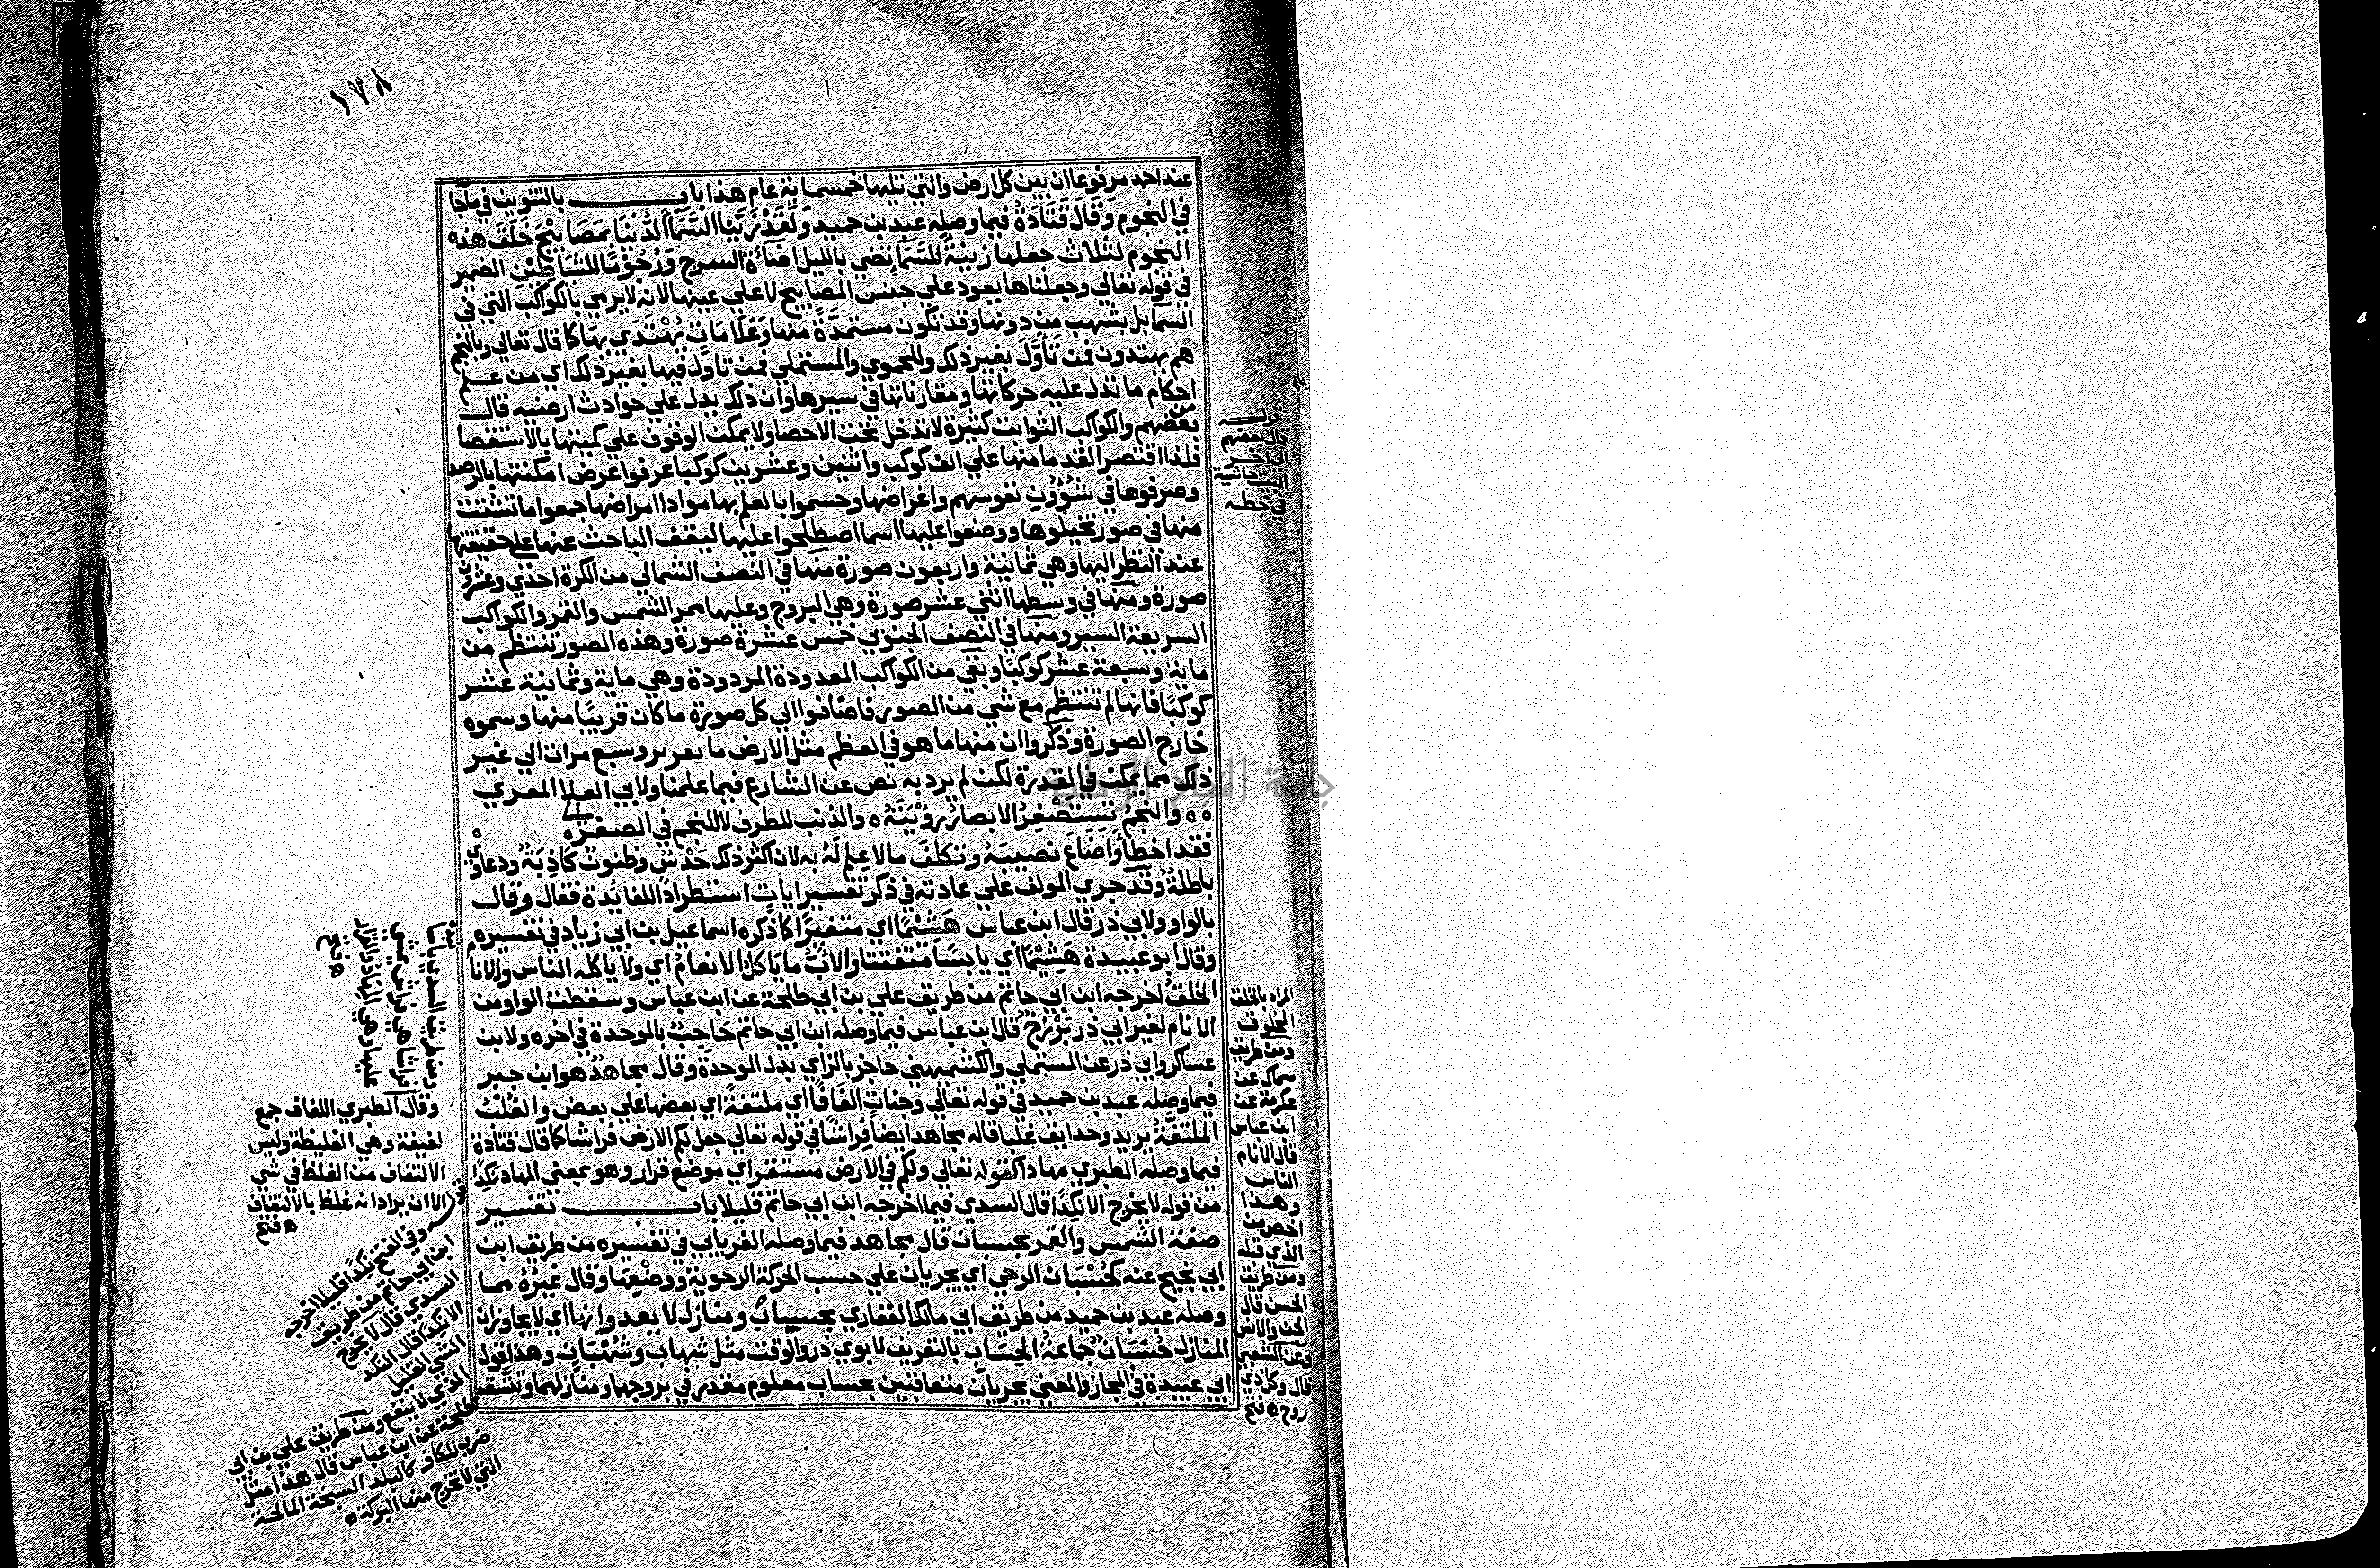 ١٧٨
عند احمد مرفوعا ان بين كل ارض والتي تليها خمسماية عام هذا باب بالتنوين في ماجا
في النجوم وَقَالَ قَتَادَةُ فيما وصله عبد بن حميد وَلَقَدْ زَيَّنَّا السَّمَآ الدُّنْيَا بِمَصَابِيْحَ خَلَقَ هذه
النجوم لثلاث جعلها زينةً للسَّمَآ تضي بالليل اضآءة السرج وَرُجُوْمًا للشياطين الضمير
في قوله تعالي وجعلناها يعود علي جنس المصابيح لا علي عينها لانه لا يرمي بالكواكب التي في
السمآ بل بشهب من دونها وقد تكون مستمدَّةً منها وَعَلَامَاتٍ يُهْتَدَي بهَا كما قال تعالي وبالنجم
هم يهتدون فمن تَأَوَّلَ بغير ذلك وللحموي والمستملي فمن تاول فيها بغير ذلك اي من علم
احكام ما تدل عليه حركاتها ومقارناتها في سيرها وان ذلك يدل علي حوادث ارضيه قال
بعضهم والكواكب الثوابت كثيرة لا تدخل تحت الاحصا ولا يمكن الوقوف علي كميتها بالاستقصا
فلذا اقتصر القدما منها علي الف كوكب واثنين وعشرين كوكبا عرفوا عرض امكنتها بالرصد
وصرفوها في شؤون نفوسهم واغراضها وحسموا بالعلم بها مواد امراضها جمعوا ما تشتت
منها في صور تخيلوها ووضعوا عليها اسما اصطلحوا عليها ليقف الباحث عنها علي حقيقتها
عند النظر اليها وهي ثمانية واربعون صورة منها في النصف الشمالي من الكرة احدي وعشرون
صورة ومنها في وسطها اثني عشر صورة وهي البروج وعليها ممر الشمس والقمر والكواكب
السريعة السير ومنها في النصف الجنوبي خمس عشرة صورة وهذه الصور تنتظم من
ماية وسبعة عشر كوكبًا وبقي من الكواكب المعدودة المردودة وهي ماية وثمانية عشر
كوكبًا فانها لم تنتظم مع شي من الصور فاضافوا الي كل صورة ما كان قريبًا منها وسموه
خارج الصورة وذكروا ان منها ما هو في العظم مثل الارض ما يعربر وسبع مرات الي غير
ذلك مما يمكن في القدرة لكن لم يرد به نص عن الشارع فيما علمنا ولابي العلا المعري
والنجمُ تستصْغِرُ الابصارُ رؤْيَتَهُ ه والذنب للطرف لا للنجم في الصغر ه
فقد اخطأ وَاَضَاعَ نصيبَهُ وتكلفَ مالا عِلم لَهُ به لان اكثر ذلك حَدْسٌ وظنون كَاذِبَةٌ ودعاوي
باطلةٌ وقد جري المولف علي عادته في ذكر تفسير ايات استطرادًا للفايدة فقال وقال
بالواو ولابي ذر قال ابن عباس هَشِيْمًا اي متغيرًا كما ذكره اسماعيل بن ابي زياد في تفسيره
وقال ابو عبيدة هَشِيْمًا اي يابسًا متفتتا والابُّ ما يَاكل الانعامُ اي ولا ياكله الناس والانام
الخلق اخرجه ابن ابي حاتم من طريق علي بن ابي طلحة عن ابن عباس وسقطت الواو من
الانام لغير ابي ذر بَرْزَخٌ قال ابن عباس فيما وصله ابن ابي حاتم حَاجِبٌ بالموحدة في اخره ولابن
عساكر وابي ذر عن المستملي والكشميهني حاجز بالزاي بدل الوحدة وقال مجاهدٌ هو ابن جبر
فيما وصله عبد بن حميد في قوله تعالي وجناتٍ الفَافًا اي ملتفةً اي بعضها علي بعض والغُلْبُ
الملتفةُ يريد وحدايق غلبا قاله مجاهد ايضا فِراشًا في قوله تعالي جعل لكم الارض فراشا كما قال قتادة
فيما وصله الطبري مهادًا كقوله تعالي ولكم في الارض مستقر اي موضع قرار وهو بمعني المهاد نَكِدًا
من قوله لا يخرج الا نكدًا قال السدي فيما اخرجه ابن ابي حاتم قليلا باب تفسير
صفة الشمس والقمر بحسبان قال مجاهد فيما وصله الفريابي في تفسيره من طريق ابن
ابي نجيح عنه كحُسْبَان الرحي اي يجريان علي حسب الحركة الرحوية ووضْعِهَا وقال غيرُهُ مما
وصله عبد بن حميد من طريق ابي مالك الغفاري بحسبابٍ ومنازل لا يعدوانها اي لا يجاوزان
المنازل حُسْبَانٌ جَمَاعَةُ الحِسَاب بالتعريف لابوي ذر والوقت مثل شهاب وشُهْبَانٍ وهذا قول
ابي عبيدة في المجاز والمعني يجريان متعاقبين بحساب معلوم مقدر في بروجها ومنازلهما وتتسق
قوله
قال بعضهم
الي اخر
البيت حاشية
في خطه
المراد بالخلق
المخلوق
ومن طريق
سماك عن
عكرمة عن
ابن عباس
قال الانام
الناس
وهذا
اخص من
الذي قبله
ومن طريق
الحسن قال
الجن والانس
وعن الشعبي
قال وكل ذي
روح ه فتح
وقال الطبري اللفاف جمع
لفيفة وهي الغليظة وليس
الالتفاف من الغلظ في شي
الا ان يراد انه غلظ بالالتفاف
ه فتح
وفي الفتح نكدا قليلا اخرجه
ابن ابي حاتم من طريق
السدي قال لا يخرج
الا نكدا قال النكد
الشي القليل
الذي لا ينفع ومن طريق علي بن ابي
طلحة عن ابن عباس قال هذا مثل
ضرب للكافر كالبلد السبخة المالحة
التي لا تخرج منها البركة ه